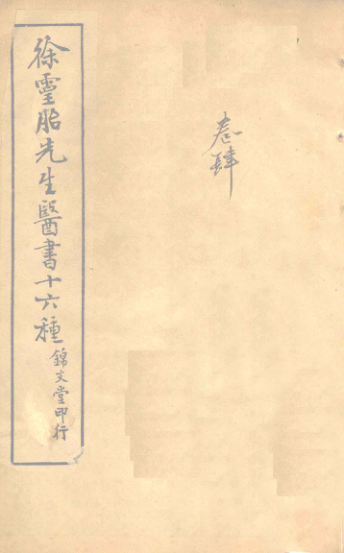 徐靈胎先生醫書十六種
錦文堂印行
卷肆